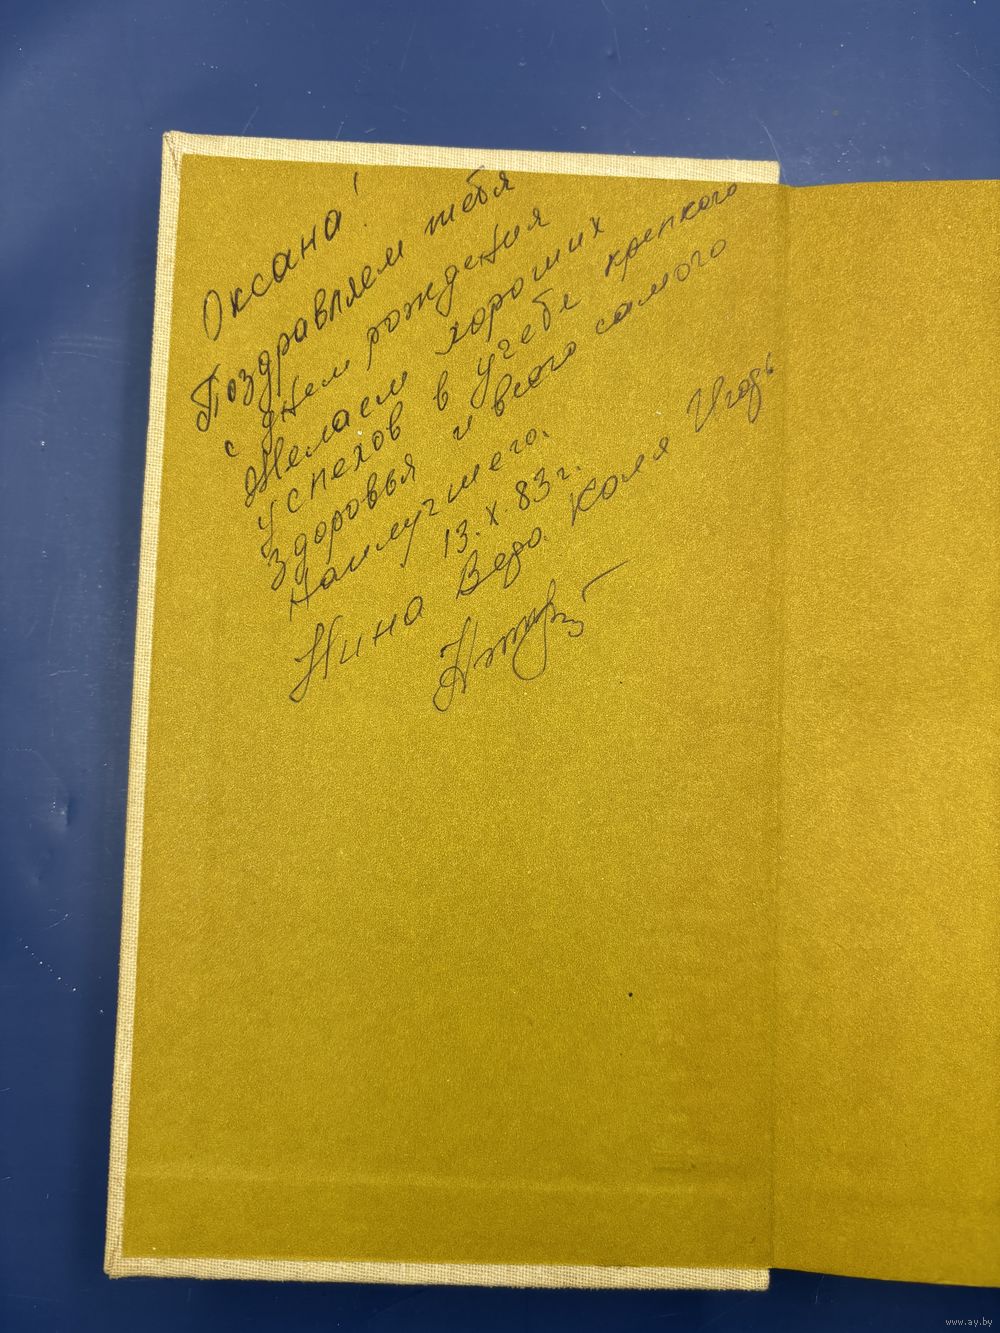 Оксана!
Поздравляем тебя
с днем рождения
Желаем хороших
успехов в учебе крепкого
здоровья и всего самого
наилучшего.
13.X.83г.
Нина Вера Коля Игорь
www.ay.by